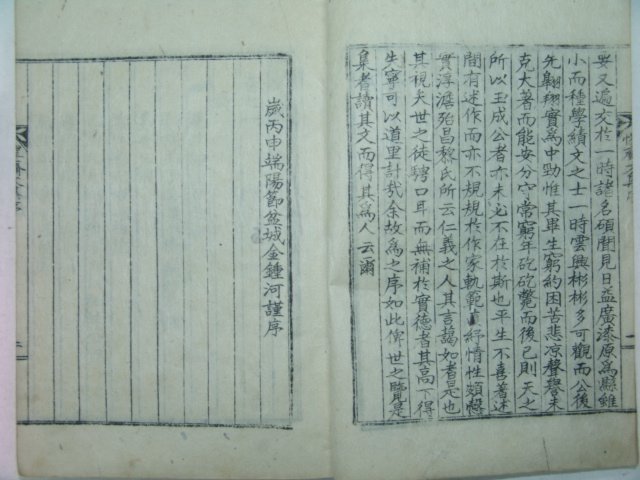 與又遍交於一時諸名碩聞見日益廣漆原爲縣雖
小而種學績文之士一時雲興彬彬多可觀而公後
先翺翔實爲中勁惟其畢生窮約困苦悲凉聲譽未
克大著而能安分守常窮年矻矻斃而後已則天之
所以玉成公者亦未必不在於斯也平生不喜著述
間有述作而亦不規規於作家軌範 抒情性頗
實淳澹殆昌黎氏所云仁義之人其言藹如者是也
其視夫世之徒騁口耳而無補於實德者其高下得
失寧可以道里計哉余故爲之序如此俾世之臨是
集者讀其文而得其爲人云爾
歲丙申端陽節盆城金鍾河謹序